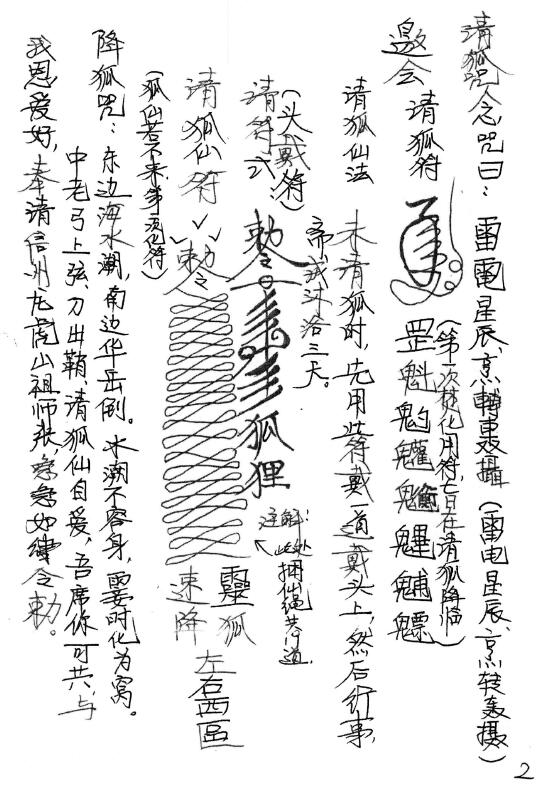 请狐咒念咒曰：雷電星辰、烹轉轰攝（雷电星辰、烹转轰摄）
邀会 请狐符 罡魁
（第一次焚化用符，七日在请狐降临）
请狐仙法 未请狐时，先用此符戴一道戴头上，然后行事，
斋戒沐浴三天。
（头戴符）
请符式 勅令 狐狸
注解：此处捆仙绳共 道
请狐仙符 勅令 靈狐速降 左右西區
（狐仙若不来，第 化符）
降狐咒：东边海水潮，南边华岳倒。水潮不容身，霎时化为窝。
中老弓上弦、刀出鞘、请狐仙自爱，吾席你可共，与
我恩爱好，奉请信州龙虎山祖师张，急急如律令勅。
2